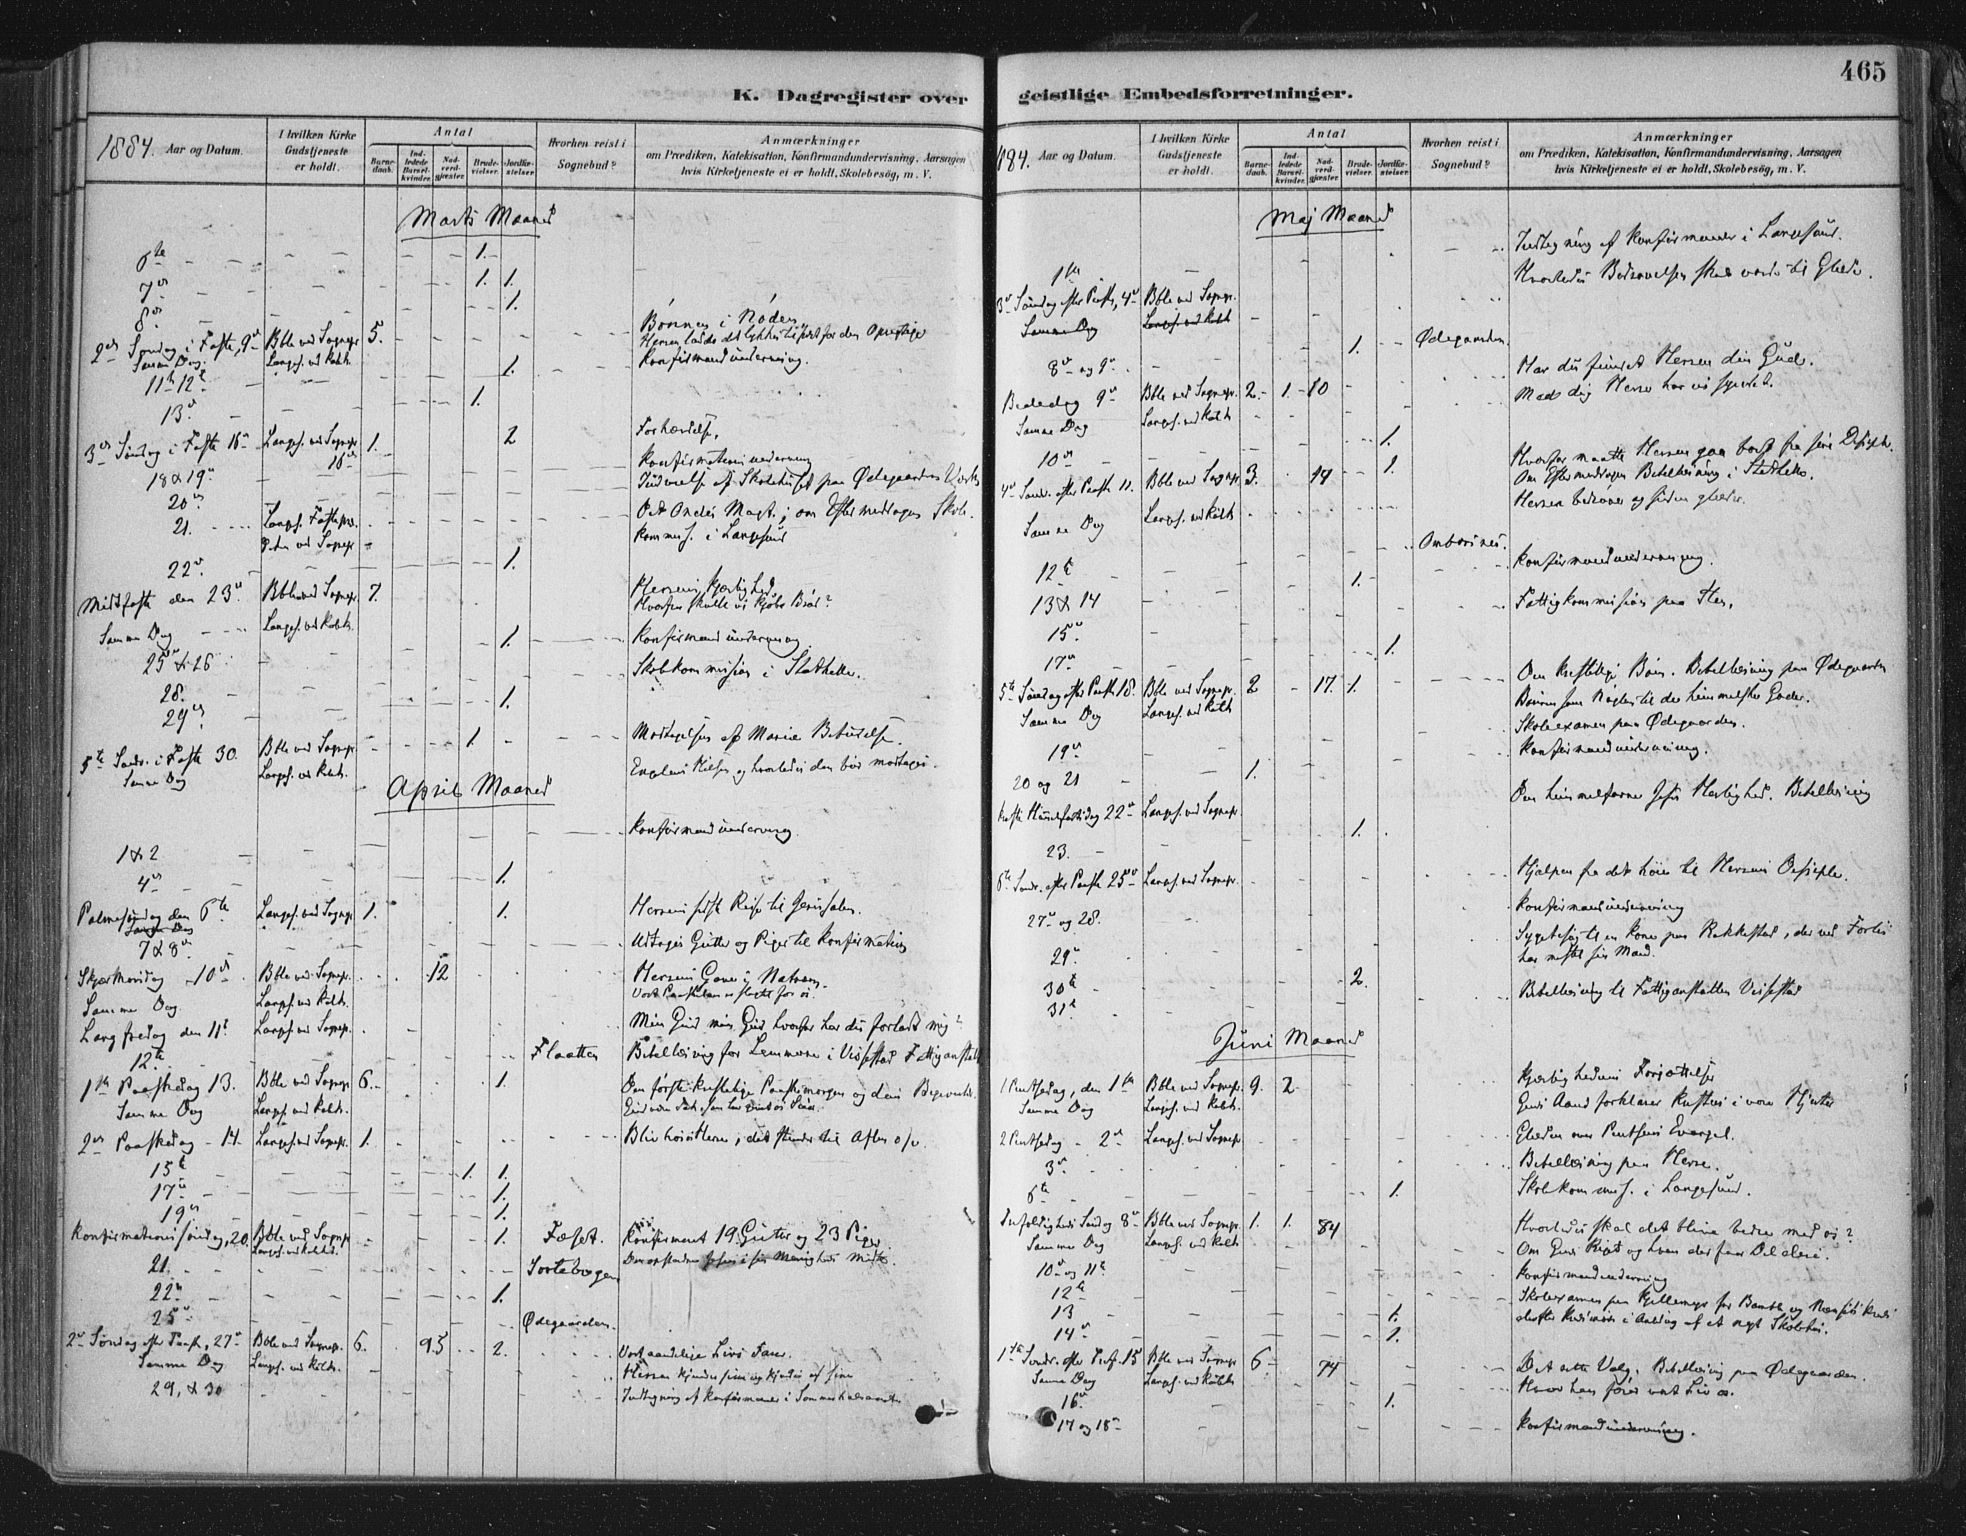 465
K. Dagregister over geistlige Embedsforretninger.
1884. Aar og Datum.
I hvilken Kirke Gudstjeneste er holdt.
Antal
Barnedaab.
Indledede Barselkvinder.
Nadverdgjæster.
Brudevielser.
Jordfæstelser.
Hvorhen reist i Sognebud?
Anmærkninger
om Prædiken, Katekisation, Konfirmandundervisning, Aarsagen
hvis Kirketjeneste ei er holdt, Skolebesøg, m. V.
Marts Maaned
6te 1.
7de 1. 1.
8de 1.
2den Søndag i Faste, 9de Bble ved Sognepr. 5. Bønnen i Nøden
Samme Dag Langes. ved Kabl.
11te 12te 1. Konfirmandundervisning.
13de 1.
3die Søndag i Faste 16de Langes. ved Sognepr. 1. 2 Forhærdelse.
16de
18 & 19de Konfirmationsundervisning
20de Indvielse af Skolehuset paa Ødegaardens Værk
21. Langes. Fastepræ. Det Ondes Magt; om Eftermiddagen Skole-
ved Sognepr. kommis. i Langesund
22de 1.
Midtfaste den 23de Bble ved Sognepr. 7. Herrens Kjærlighed.
Hvorfra skulle vi kjøbe Brød?
Samme Dag Langes. ved Kabl.
25de & 26 1. Konfirmandundervisning
28. Skolekommission i Stathelle.
29de 1.
5te Sønd. i Faste 30. Bble ved Sognepr. 1. Modtagelsen af Mariæ Bebudelse.
Samme Dag Langes. ved Kabl. Engelens Hilsen og hvorledes den bør modtages.
April Maaned
1 & 2 Konfirmandundervisning.
4de 1.
Palmesøndag den 6te Langes. ved Sognepr. 1. 1. Herrens sidste Reise til Jerusalem.
Samme Dag
7 & 8de Udtages Gutter og Piger til Konfirmation
Skjærthorsdag 10de Bble ved Sognepr. 12 Herrens Gave i Natveren.
Samme Dag Langes. ved Kabl. Vort Paaskelam er slagtet for os.
Langfredag den 11te Langes. ved Sognepr. Min Gud min Gud hvorfor har du forladt mig?
12te Flaatten Bibellæsning for Lemmerne i Vissestad Fattiganstalt
1ste Paaskedag 13. Bble ved Sognepr. 6. 1. Den første kristelige Paaskemorgen og dens
Samme Dag Langes. ved Kabl.
2den Paaskedag 14. Langes. ved Sognepr. 1. Bliv hos os Herre, det stunder til Aften o/v.
15te 1. 1.
17de 1.
19de 1.
Konfirmationssøndag, 20. Bble ved Sognepr. 1. Fæset. Konfirmeret 19 Gutter og 23 Piger
Langes. ved Kabl. Den opstandne Jesus i sin Menigheds Midte.
21. Tortebogen
22de 1.
25de Ødegaarden.
2den Søndag efter Paaske, 27de Bble ved Sognepr. 6. 95 2. Vort aandelige Livs Farer.
Samme Dag Langes. ved Kabl. Herren kjender sine og kjendes af sine
29, & 30 Indtegning af Konfirmander i
184. Aar og Datum.
I hvilken Kirke Gudstjeneste er holdt.
Antal
Barnedaab.
Indledede Barselkvinder.
Nadverdgjæster.
Brudevielser.
Jordfæstelser.
Hvorhen reist i Sognebud?
Anmærkninger
om Prædiken, Katekisation, Konfirmandundervisning, Aarsagen
hvis Kirketjeneste ei er holdt, Skolebesøg, m. V.
Maj Maaned
1ste Indtegning af Konfirmander i Langesund.
3die Søndag efter Paaske, 4de Bble ved Sognepr. Hvorledes Bedrøvelsen skal vorde til Glæde.
Samme Dag Langes. ved Kabl.
8de og 9de 1. Ødegaarden.
Bededag 9de Bble ved Sognepr. 2. 1. 10 Har du fundet Herren din Gud.
Samme Dag Langes. ved Kabl. Mod dig Herre har vi syndet.
10de 1.
4de Sønd. efter Paaske 11. Bble ved Sognepr. 3. 14 1. Hvorfor maatte Herren gaa bort fra sine Disciple.
Om Eftermiddagen Bibellæsning i Stathelle.
Samme Dag Langes. ved Kabl. Herren bedrøver og siden glæder.
12te Ombørsnes.
13 & 14 1. Konfirmandundervisning.
15de Fattigkommission paa Stat.
17de 1.
5te Søndag efter Paaske 18. Bble ved Sognepr. 2 17. 1. Om kristelige Bøn. Bibellæsning paa Ødegaarden
Samme Dag Langes. ved Kabl. Bønnen som Nøglen til de himmelske Goder.
19de Skoleexamen paa Ødegaarden.
20 og 21 1. Konfirmandundervisning.
Kristi Himmelfartsdag 22de Langes. ved Sognepr. Den himmelfarne Jesu Herlighed. Bibellæsning
23. 1.
6te Sønd. efter Paaske 25de Langes. ved Sognepr. Hjælpen fra det høie til Herrens Disciple.
27de og 28. Konfirmandundervisning
29de Sygebesøg til en Kone paa Rakkestad, der ved Forlis
har mistet sin Mand.
30te 2.
31te Bibellæsning til Fattiganstalten Vissestad
Juni Maaned
1 Pintsedag, den 1ste Bble ved Sognepr. 9. 2. Kjærlighedens Forjættelse
Samme Dag Langes. ved Kabl. Guds Aand forklarer Kristus i vore Hjerter
2 Pintsedag 2de Langes. ved Sognepr. Glæden over Pintsens Evangel.
3de Bibellæsning paa Herre.
6te 1. Skolekommis. i Langesund.
Trefoldigheds Søndag 8de Bble ved Sognepr. 1. 1. 84 Hvorledes skal det blive bedre med os?
Samme Dag Langes. ved Kabl. Om Guds Rige og hvem der faar Del deri.
10de og 11te Konfirmandundervisning
12te Skoleexamen paa Kjellemyr for Bamble og
13 1. Skolehus.
14de 1.
1ste Sønd. efter Tref. 15 Bble ved Sognepr. 6 74 Det rette Valg. Bibellæsning paa Ødegaarden.
Samme Dag Langes. ved Kabl. Hvor hen fører vort Liv os.
16de 1.
17 og 18de Konfirmandundervisning.